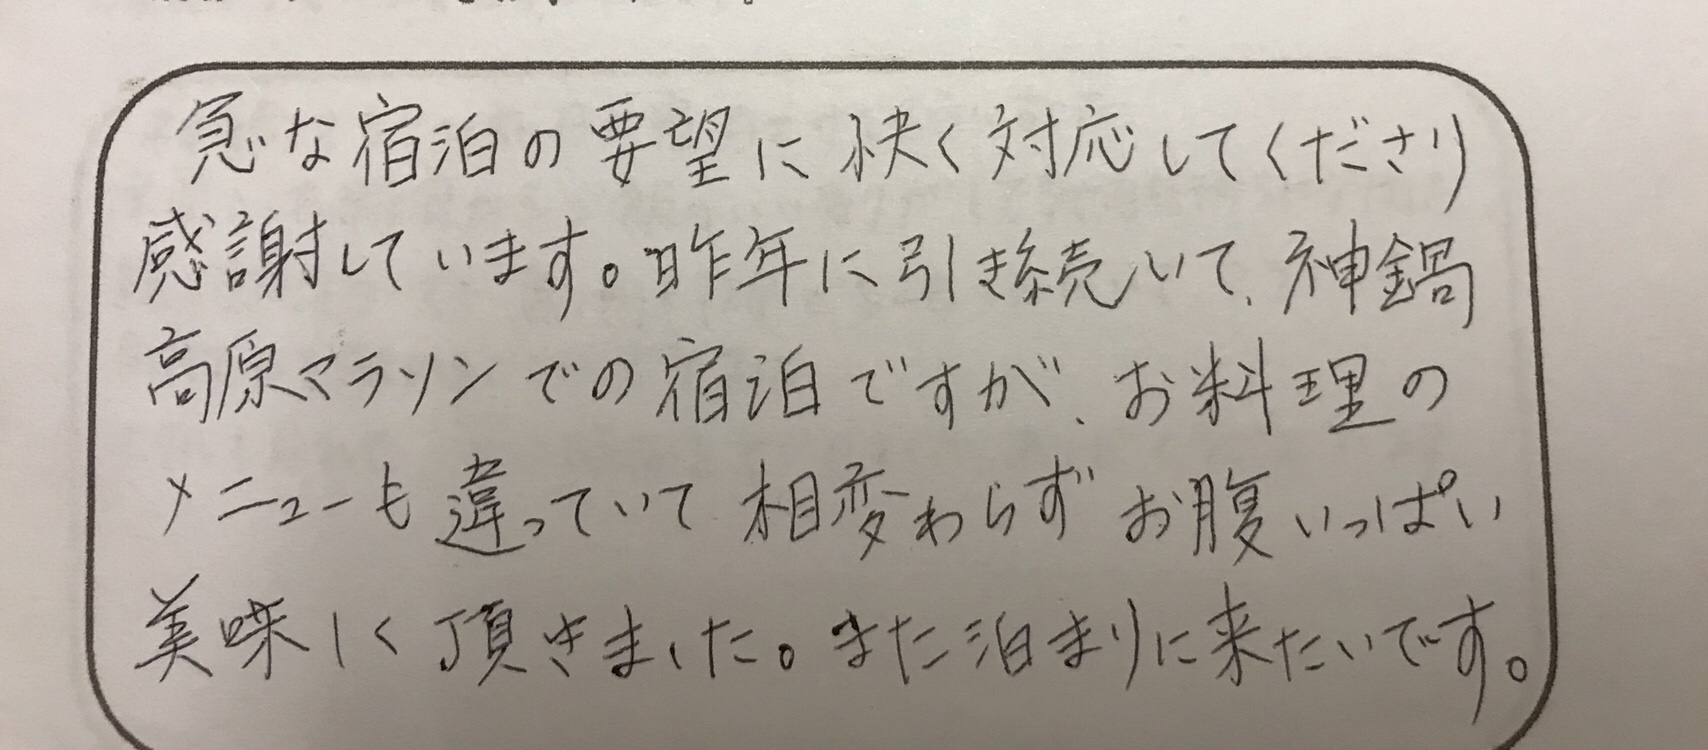 急な宿泊の要望に快く対応してくださり
感謝しています。昨年に引き続いて、神鍋
高原マラソンでの宿泊ですが、お料理の
メニューも違っていて相変わらずお腹いっぱい
美味しく頂きました。また泊まりに来たいです。